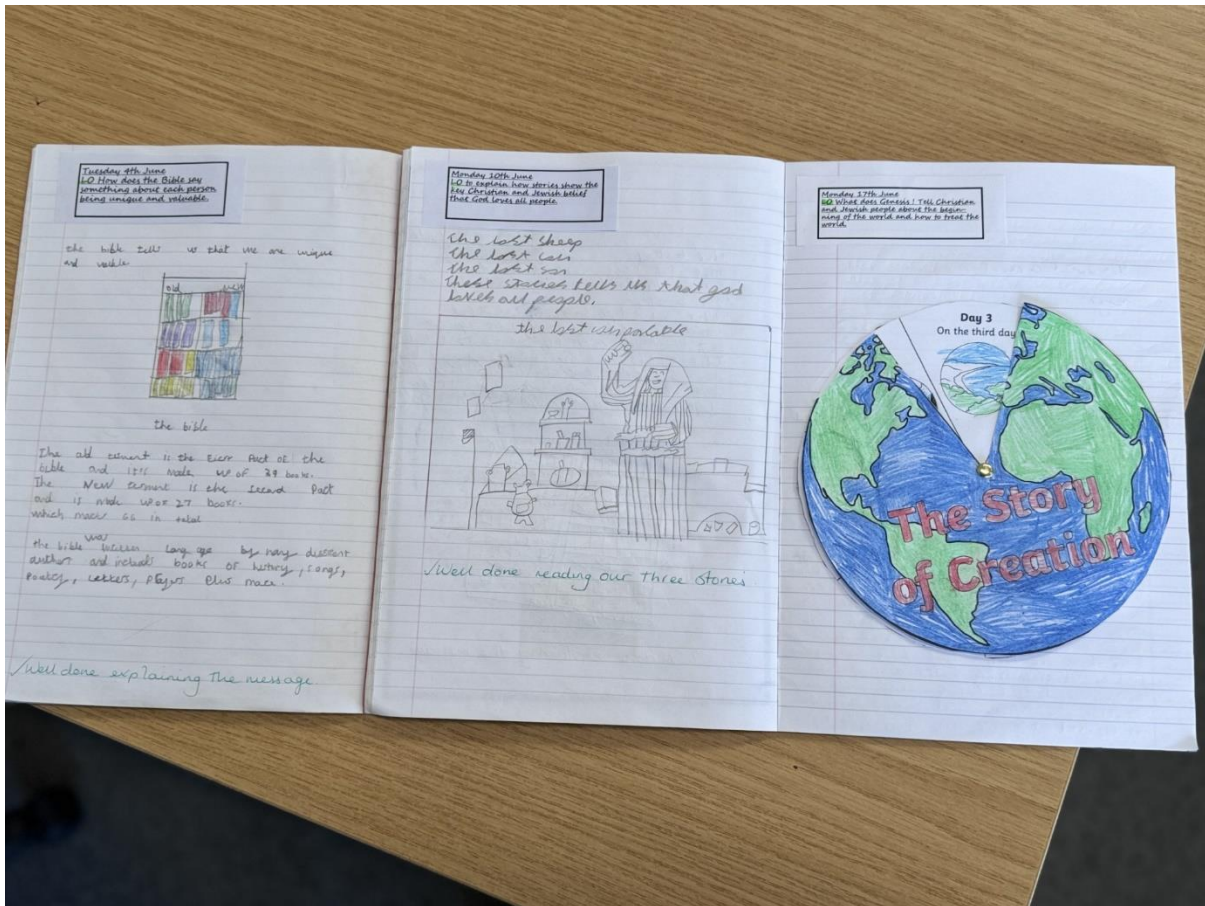 Tuesday 4th June
LO How does the Bible say
something about each person
being unique and valuable.
the bible tells us that we are unique
and
old
the bible
The old is the Part of the
bible and it's made up of 39 books.
The New is the second Part
and is made up of 27 books.
which 66 in total
was
the bible long age by many
author and books of history, songs,
Poetry, Letters, plus
✓Well done explaining the message.
Monday 10th June
LO to explain how stories show the
key Christian and Jewish belief
that God loves all people.
The lost sheep
The lost coin
The lost son
These stories tells us that god
loves all people.
the lost
✓Well done reading our three stories.
Monday 17th June
LO What does Genesis 1 Tell Christian
and Jewish people about the begin-
ning of the world and how to treat the
world.
Day 3
On the third day
The Story
of Creation